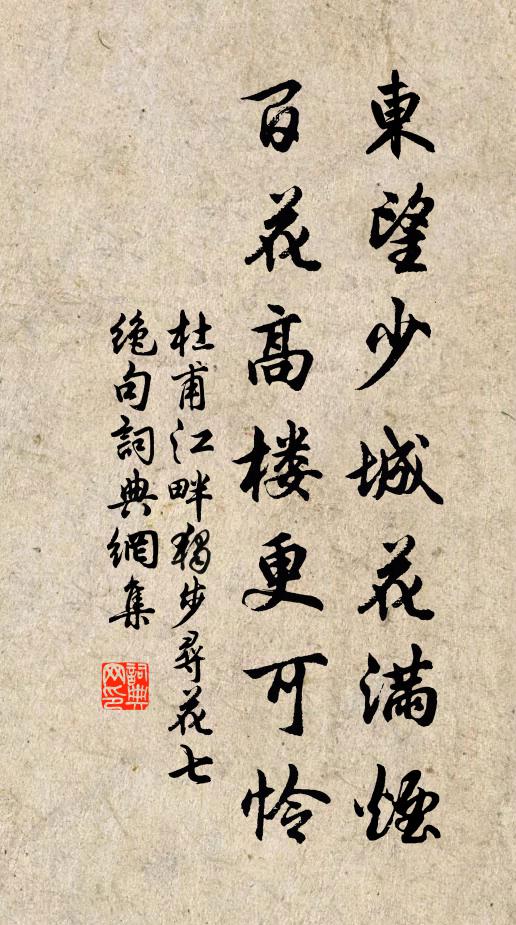 東望少城花滿煙
百花高楼更可怜
杜甫江畔獨步尋花七
絶句詞典網集
詞典网印